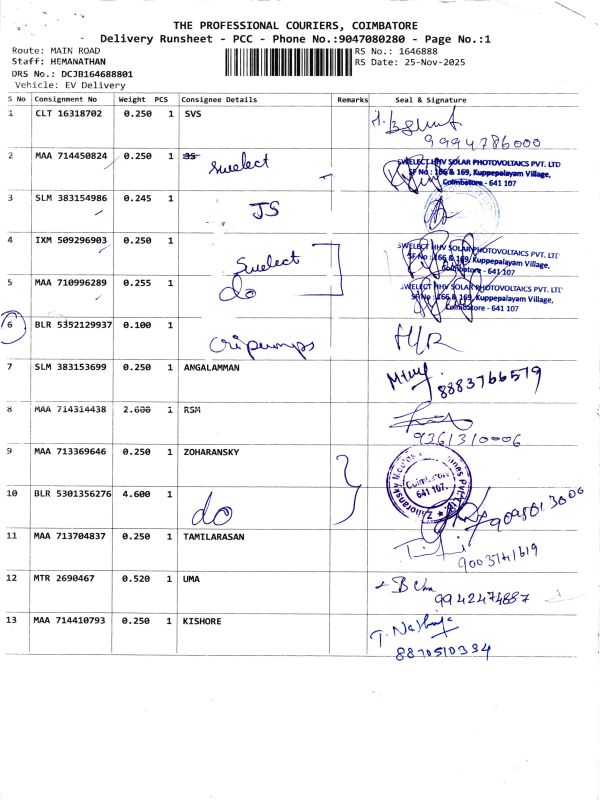 THE PROFESSIONAL COURIERS, COIMBATORE
Delivery Runsheet - PCC - Phone No.:9047080280 - Page No.:1
Route: MAIN ROAD
Staff: HEMANATHAN
DRS No.: DCJB164688801
Vehicle: EV Delivery
RS No.: 1646888
RS Date: 25-Nov-2025
S No Consignment No Weight PCS Consignee Details Remarks Seal & Signature
1 CLT 16318702 0.250 1 SVS
9994786000
2 MAA 714450824 0.250 1 Swelect
SWELECT HHV SOLAR PHOTOVOLTAICS PVT. LTD
SF No : 166 & 169, Kuppepalayam Village,
Coimbatore - 641 107
3 SLM 383154986 0.245 1 JS
4 IXM 509296903 0.250 1 Swelect
SWELECT HHV SOLAR PHOTOVOLTAICS PVT. LTD
SF No : 166 & 169, Kuppepalayam Village,
Coimbatore - 641 107
5 MAA 710996289 0.255 1 do
SWELECT HHV SOLAR PHOTOVOLTAICS PVT. LTD
SF No : 166 & 169, Kuppepalayam Village,
Coimbatore - 641 107
6 BLR 5392129937 0.100 1 Cri pumps
7 SLM 383153699 0.250 1 ANGALAMMAN
8883766579
8 MAA 714314438 2.600 1 RSM
9361310006
9 MAA 713369646 0.250 1 ZOHARANSKY
Coimbatore
641 107.
10 BLR 5301356276 4.600 1 do
11 MAA 713704837 0.250 1 TAMILARASAN
9003741619
12 MTR 2690467 0.520 1 UMA
9942474887
13 MAA 714410793 0.250 1 KISHORE
8870510384